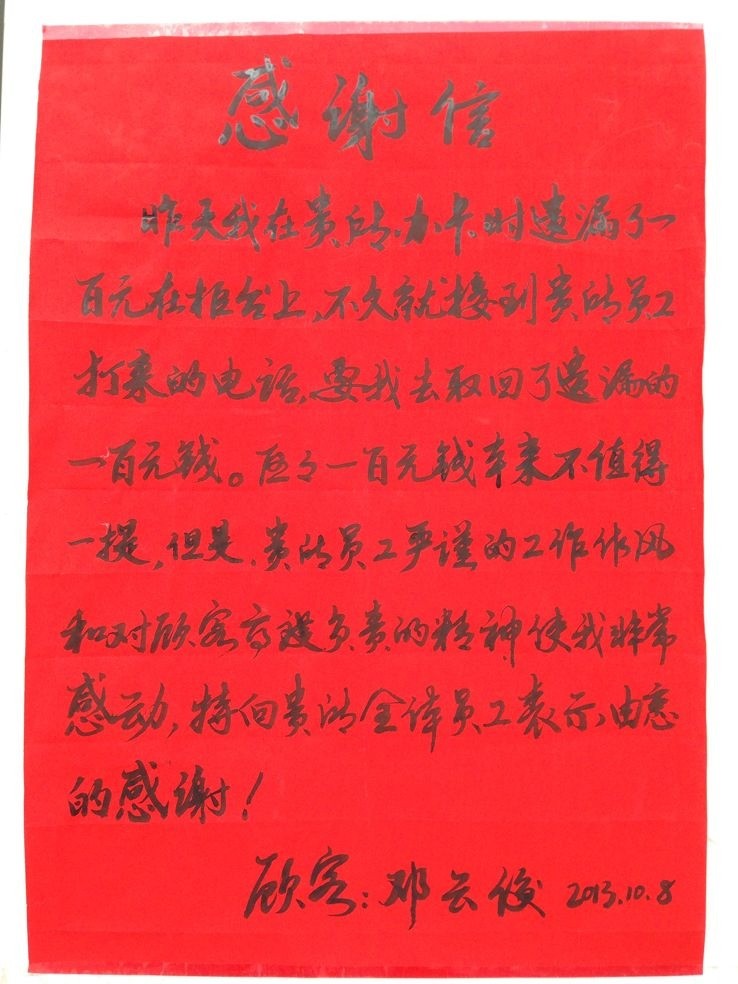 感谢信
昨天我在贵所办卡时遗漏了一
百元在柜台上,不久就接到贵所员工
打来的电话,要我去取回了遗漏的
一百元钱。区区一百元钱本来不值得
一提,但是,贵所员工严谨的工作作风
和对顾客高度负责的精神使我非常
感动,特向贵所全体员工表示由衷
的感谢!
顾客:邓云俊 2013.10.8